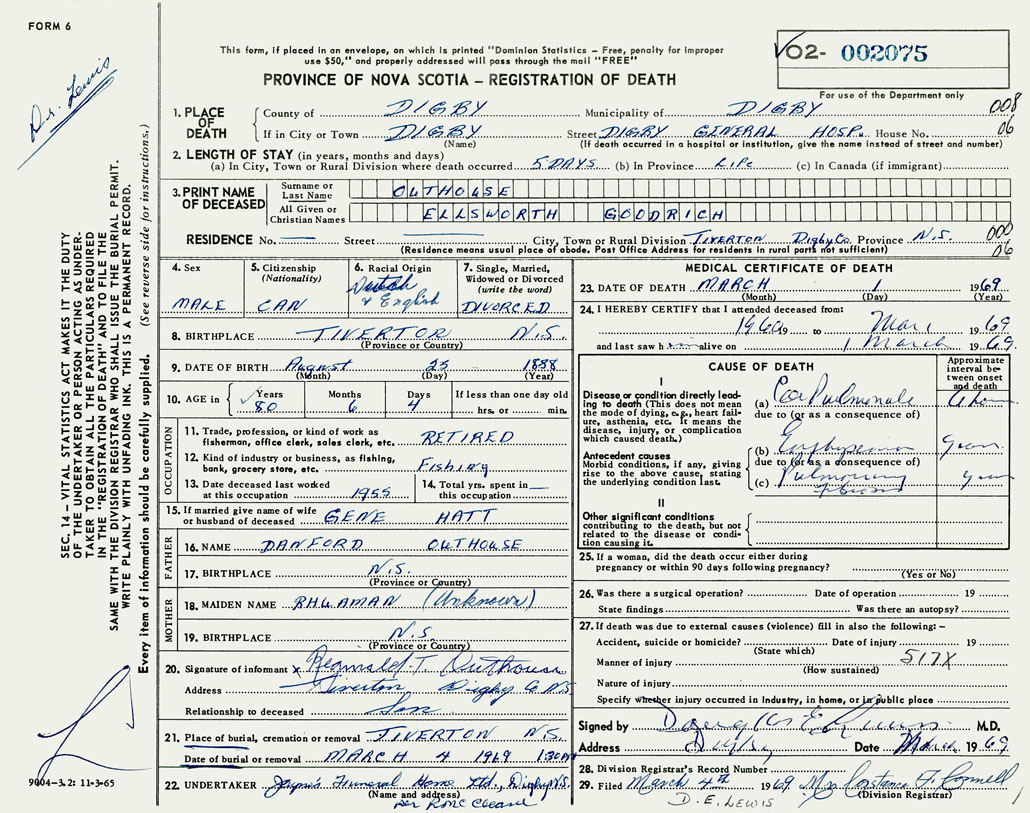 FORM 6
Dr. Lewis
This form, if placed in an envelope, on which is printed "Dominion Statistics – Free, penalty for improper
use $50," and properly addressed will pass through the mail "FREE"
PROVINCE OF NOVA SCOTIA – REGISTRATION OF DEATH
02- 002075
For use of the Department only
1. PLACE OF DEATH
County of DIGBY Municipality of DIGBY 008
If in City or Town DIGBY Street DIGBY GENERAL HOSP. House No. 06
(Name) (If death occurred in a hospital or institution, give the name instead of street and number)
2. LENGTH OF STAY (in years, months and days)
(a) In City, Town or Rural Division where death occurred 5 DAYS (b) In Province LIFE (c) In Canada (if immigrant)
3. PRINT NAME OF DECEASED
Surname or Last Name OUTHOUSE
All Given or Christian Names ELLSWORTH GOODRICH
RESIDENCE No. — Street — City, Town or Rural Division TIVERTON Digby Co. Province N.S. 000
(Residence means usual place of abode. Post Office Address for residents in rural parts not sufficient) 06
4. Sex MALE
5. Citizenship (Nationality) CAN
6. Racial Origin Dutch & English
7. Single, Married, Widowed or Divorced (write the word) DIVORCED
8. BIRTHPLACE TIVERTON N.S.
(Province or Country)
9. DATE OF BIRTH August 25 1888
(Month) (Day) (Year)
10. AGE in Years 80 Months 6 Days 4 If less than one day old hrs. or min.
OCCUPATION
11. Trade, profession, or kind of work as fisherman, office clerk, sales clerk, etc. RETIRED
12. Kind of industry or business, as fishing, bank, grocery store, etc. Fishing
13. Date deceased last worked at this occupation 1955
14. Total yrs. spent in this occupation —
15. If married give name of wife or husband of deceased GENE HATT
FATHER
16. NAME DANFORD OUTHOUSE
17. BIRTHPLACE N.S.
(Province or Country)
MOTHER
18. MAIDEN NAME RHUAMAN (Unknown)
19. BIRTHPLACE N.S
(Province or Country)
20. Signature of informant x Reginald T. Outhouse
Address Tiverton Digby Co N.S.
Relationship to deceased Son
21. Place of burial, cremation or removal TIVERTON N.S.
Date of burial or removal MARCH 4 1969 1:30
22. UNDERTAKER Funeral Home Ltd., Digby N.S.
(Name and address)
per
MEDICAL CERTIFICATE OF DEATH
23. DATE OF DEATH MARCH 1 1969
(Month) (Day) (Year)
24. I HEREBY CERTIFY that I attended deceased from:
1960 19 to Mar 1 1969
and last saw him alive on 1 March 1969.
CAUSE OF DEATH
Approximate interval between onset and death
I
Disease or condition directly leading to death (This does not mean the mode of dying, e.g., heart failure, asthenia, etc. It means the disease, injury, or complication which caused death.)
(a) Cor Pulmonale
due to (or as a consequence of)
Antecedent causes
Morbid conditions, if any, giving rise to the above cause, stating the underlying condition last.
(b) Emphysema years
due to (or as a consequence of)
(c) Pulmonary fibrosis years
II
Other significant conditions contributing to the death, but not related to the disease or condition causing it.
25. If a woman, did the death occur either during pregnancy or within 90 days following pregnancy?
(Yes or No)
26. Was there a surgical operation? Date of operation 19
State findings Was there an autopsy?
27. If death was due to external causes (violence) fill in also the following: –
Accident, suicide or homicide? Date of injury 19
(State which)
Manner of injury 517X
(How sustained)
Nature of injury
Specify whether injury occurred in industry, in home, or in public place
Signed by Doug E. Lewis M.D.
Address Digby Date March 1969.
28. Division Registrar's Record Number
29. Filed March 4th 1969 Mrs Constance F. Connell
D. E. LEWIS (Division Registrar)
SEC. 14 – VITAL STATISTICS ACT MAKES IT THE DUTY
OF THE UNDERTAKER OR PERSON ACTING AS UNDER-
TAKER TO OBTAIN ALL THE PARTICULARS REQUIRED
IN THE "REGISTRATION OF DEATH" AND TO FILE THE
SAME WITH THE DIVISION REGISTRAR WHO SHALL ISSUE THE BURIAL PERMIT.
WRITE PLAINLY WITH UNFADING INK. THIS IS A PERMANENT RECORD.
Every item of information should be carefully supplied. (See reverse side for instructions.)
9004–3.2: 11-3-65